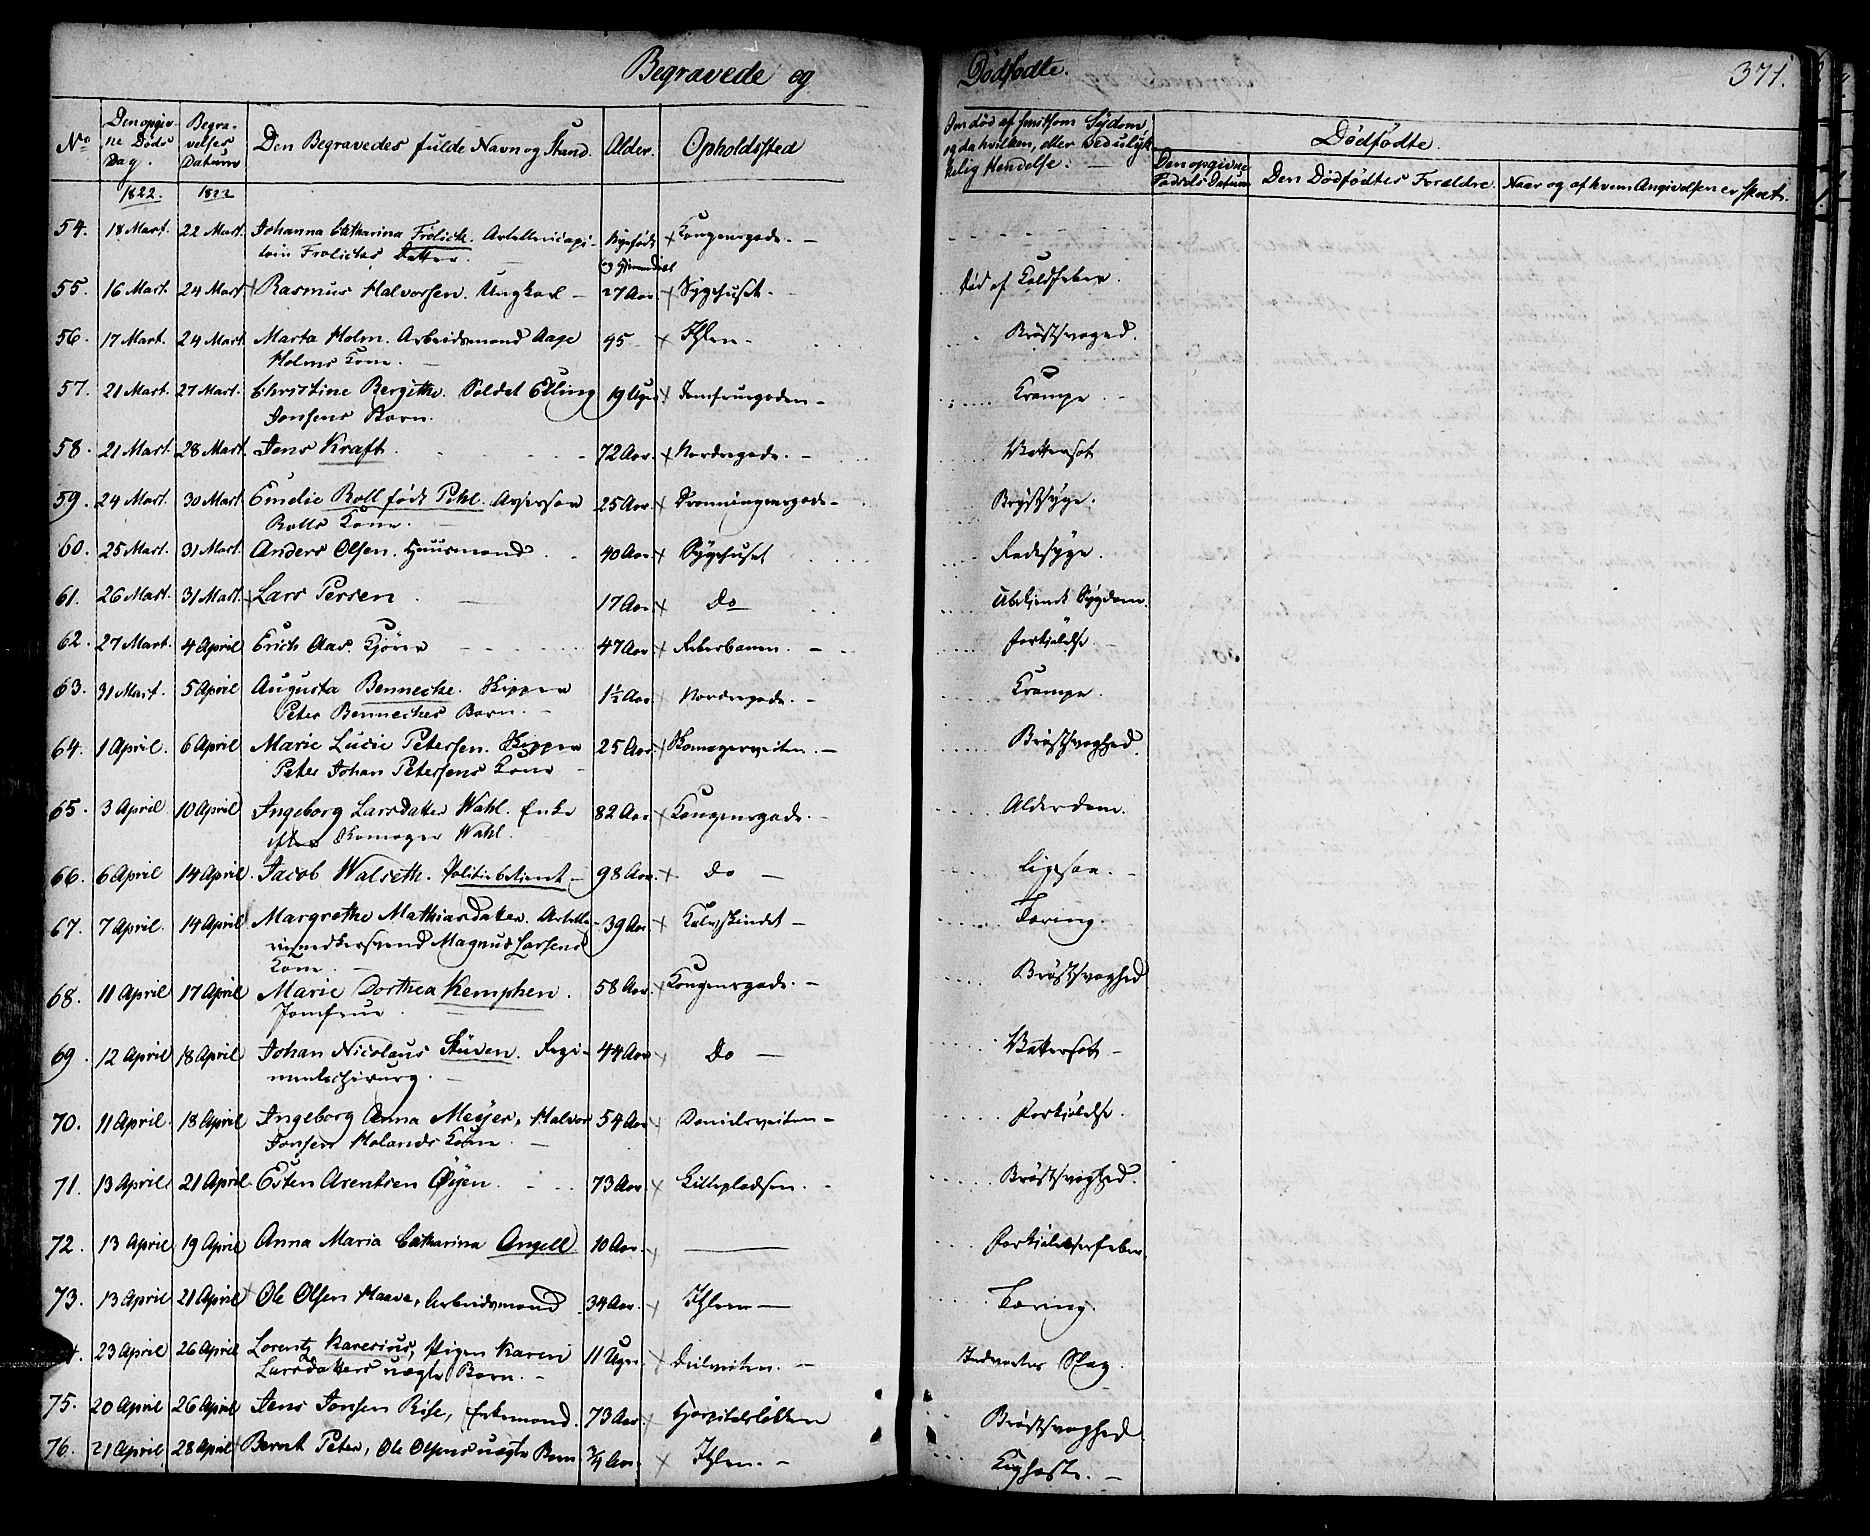 Begravede og Dödfödte. 371.
No Den opgivne Døds Dag. Begravelses Datum Den Begravedes fulde Navn og Stand. Alder. Opholdsted Om død af smitsom Sydom, og da hvilken, eller ved ulykkelig Hendelse.
Dødfødte.
Den opgivne Fødsels Datum Den Dödfödtes Forældre. Naar og af hvem Angivelsen er skeet.
1822. 1822
54. 18 Mart. 22 Mart. Johanna Catharina Frölich. Artellericapitain Frolichs Datter. Kongensgade.
55. 16 Mart. 24 Mart. Rasmus Halvorsen. Ungkarl 27 Aar Sygehuset. Död af Koldfeber.
56. 17 Mart. 24 Mart. Marta Holm. Arbeidsmand Aage 45 Ihlen. Bröstsvaghed.
Holms Kone.
57. 21 Mart. 27 Mart. Christine Bergithe. Soldat Elling 19 Uger Jomfruegaden. Krampe.
Jonsens Barn.
58. 21 Mart. 28 Mart. Jens Kraft. 72 Aar. Nordregade. Vattersot
59. 24 Mart. 30 Mart. Emelie Roll født Pihl. Assessor 25 Aar. Dronningensgade. Brystsyge.
Rolls Kone.
60. 25 Mart. 31 Mart. Anders Olsen. Huusmand. 40 Aar Sygehuset Radesyge.
61. 26 Mart. 31 Mart. Lars Persen 17 Aar Do Ubekjendt Sygdom.
62. 27 Mart. 4 April Erich Aas. 47 Aar Reberbanen. Forkjölelse
63. 31 Mart. 5 April Augusta Bennecke. Skipper 1½ Aar Nordregade. Krampe.
Peter Benneckes Barn.
64. 1 April. 6 April Marie Lucie Petersen. Skipper 25 Aar Skomagerveiten. Bröstsvaghed.
Peter Johan Petersens Kone
65. 3 April 10 April Ingeborg Larsdatter Wahl. Enke 82 Aar Kongensgade. Alderdom.
efter Skomager Wahl.
66. 6 April 14 April Jacob Walseth. Politiebetjent 98 Aar. Do Ligesaa.
67. 7 April. 14 April Margrethe Mathiasdatter. Artelle- 39 Aar Kalvskindet Tæring.
Magnus Larsens
Kone.
68. 11 April 17 April Marie Dorthea Kemphen. 58 Aar. Kongensgade. Bröstsvaghed
Jomfrue
69. 12 April 18 April Johan Nicolaus Stüven. Regi- 44 Aar Do Vattersot
mentschirurg.
70. 11 April. 18 April Ingeborg Anna Meyer, Halvor 54 Aar Danielsveiten Forkjölelse.
Jonsens Holands Kone.
71. 13 April. 21 April. Esten Arentsen Öyen. 73 Aar. Bröstsvaghed.
72. 13 April 19 April Anna Maria Catharina Angell 10 Aar. Forkjölelsesfeber.
73. 13 April 21 April Ole Olsen Haave, Arbeidsmand 34 Aar. Ihlen Tæring.
23 April 26 April Lorentz Karesius, Pigen Karen 11 Uger. Indvortes Slag.
Larsdatters uægte Barn.
75. 20 April 26 April Jens Jonsen Rise, Enkemand. 73 Aar. Hospitalslökken Bröstsvaghed.
76. 21 April 28 April Bernt Peter, Ole Olsens uægte Barn ¾ Aar Ihlen. Kighoste.